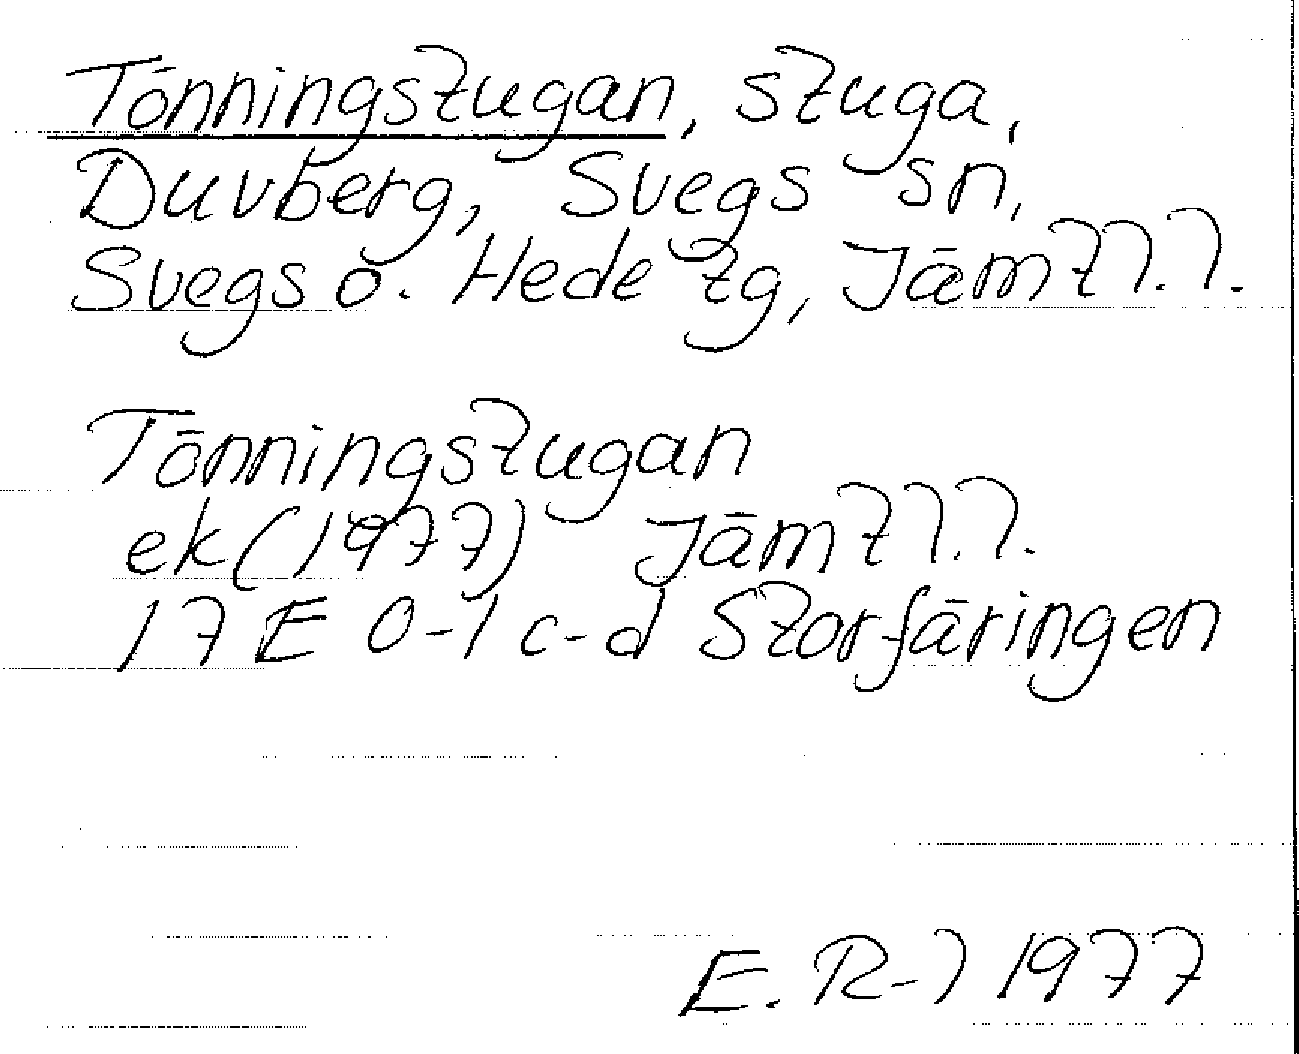 Tönningstugan, stuga,
Duvberg, Svegs sn,
Svegs o. Hede tg, Jämtl. l.
Tönningstugan
ek (1977) Jämtl. l.
17 E 0-1 c-d Storfäringen
E. R-l 1977